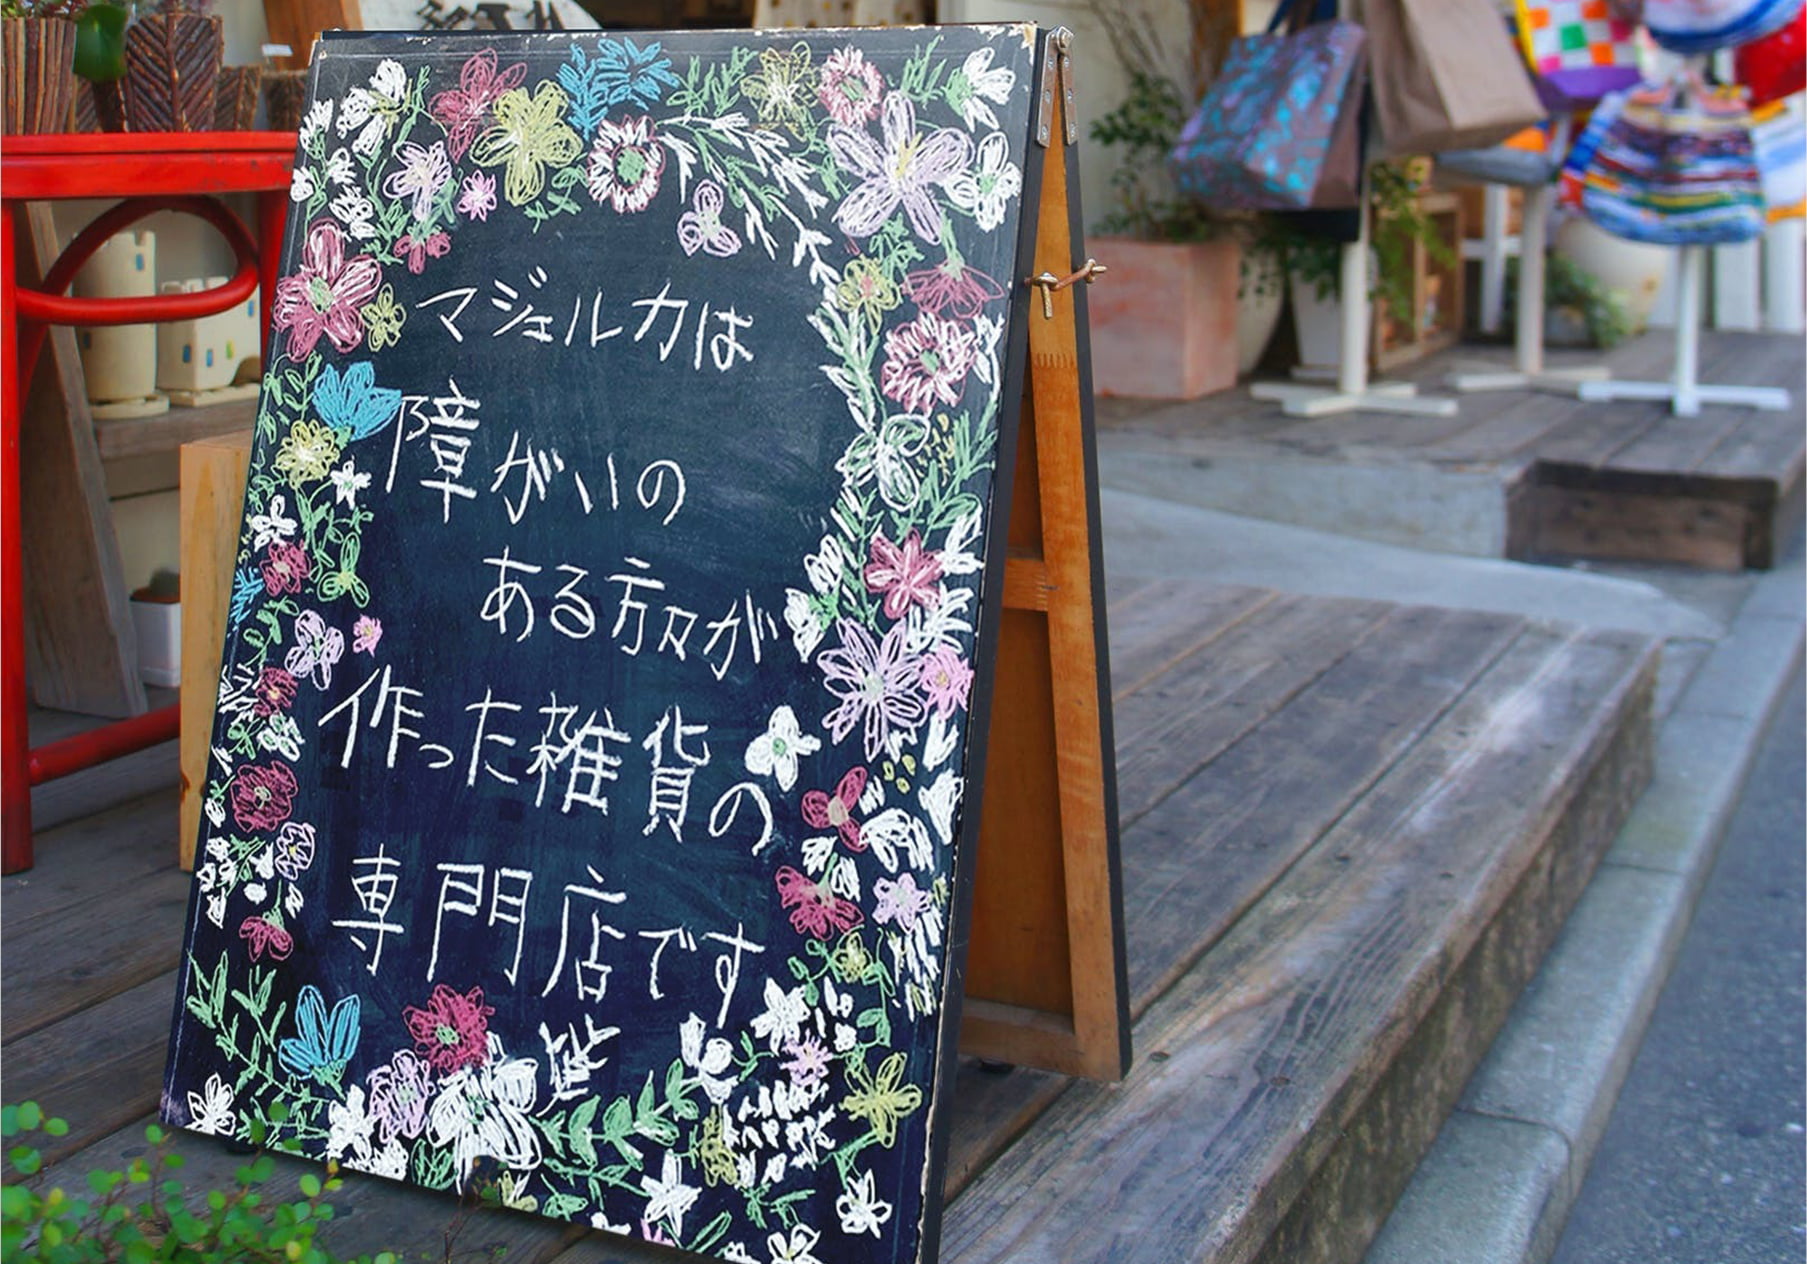 マジェルカは
障がいの
ある方々が
作った雑貨の
専門店です